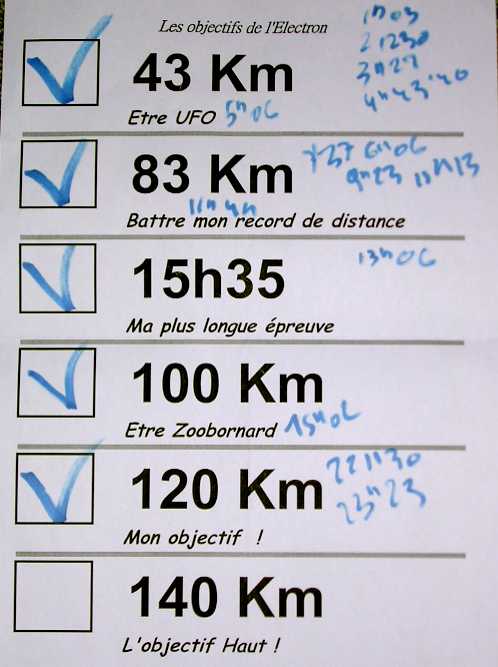 Les objectifs de l'Electron
1h03
2h30
43 Km
3h27
4h43'40
Etre UFO 5h06
83 Km
6h06
9h23 11h13
11h44
Battre mon record de distance
15h35
13h06
Ma plus longue épreuve
100 Km
Etre Zoobornard 15h06
120 Km
22h30
23h23
Mon objectif !
140 Km
L'objectif Haut !